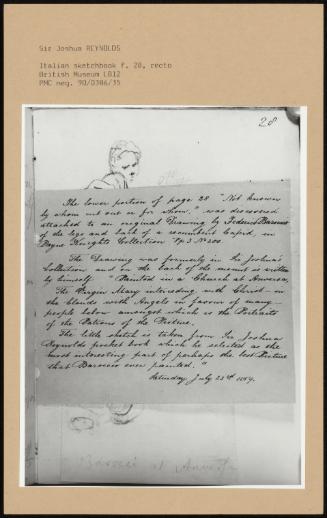 Sir Joshua REYNOLDS
Italian sketchbook f. 28, recto
British Museum LB12
PMC neg. 90/D386/35
28
The lower portion of page 28 "Not known
by whom cut out or for whom," was discovered
attached to an original Drawing by Federico Baroccio
of the legs and back of a recumbent Cupid, in
Payne Knights Collection Pp. 3 No 200
The Drawing was formerly in Sir Joshua's
Collection and on the back of the mount is written
by himself "Painted in a Church at
The Virgin Mary interceding with Christ in
the Clouds with Angels in favour of many
people below amongst which is the Portraits
of the Patrons of the Picture.
The little sketch is taken from Sir Joshua
Reynolds pocket book which he selected as the
most interesting part of perhaps the best Picture
that Baroccio ever painted."
Saturday July 23rd
Barocci at